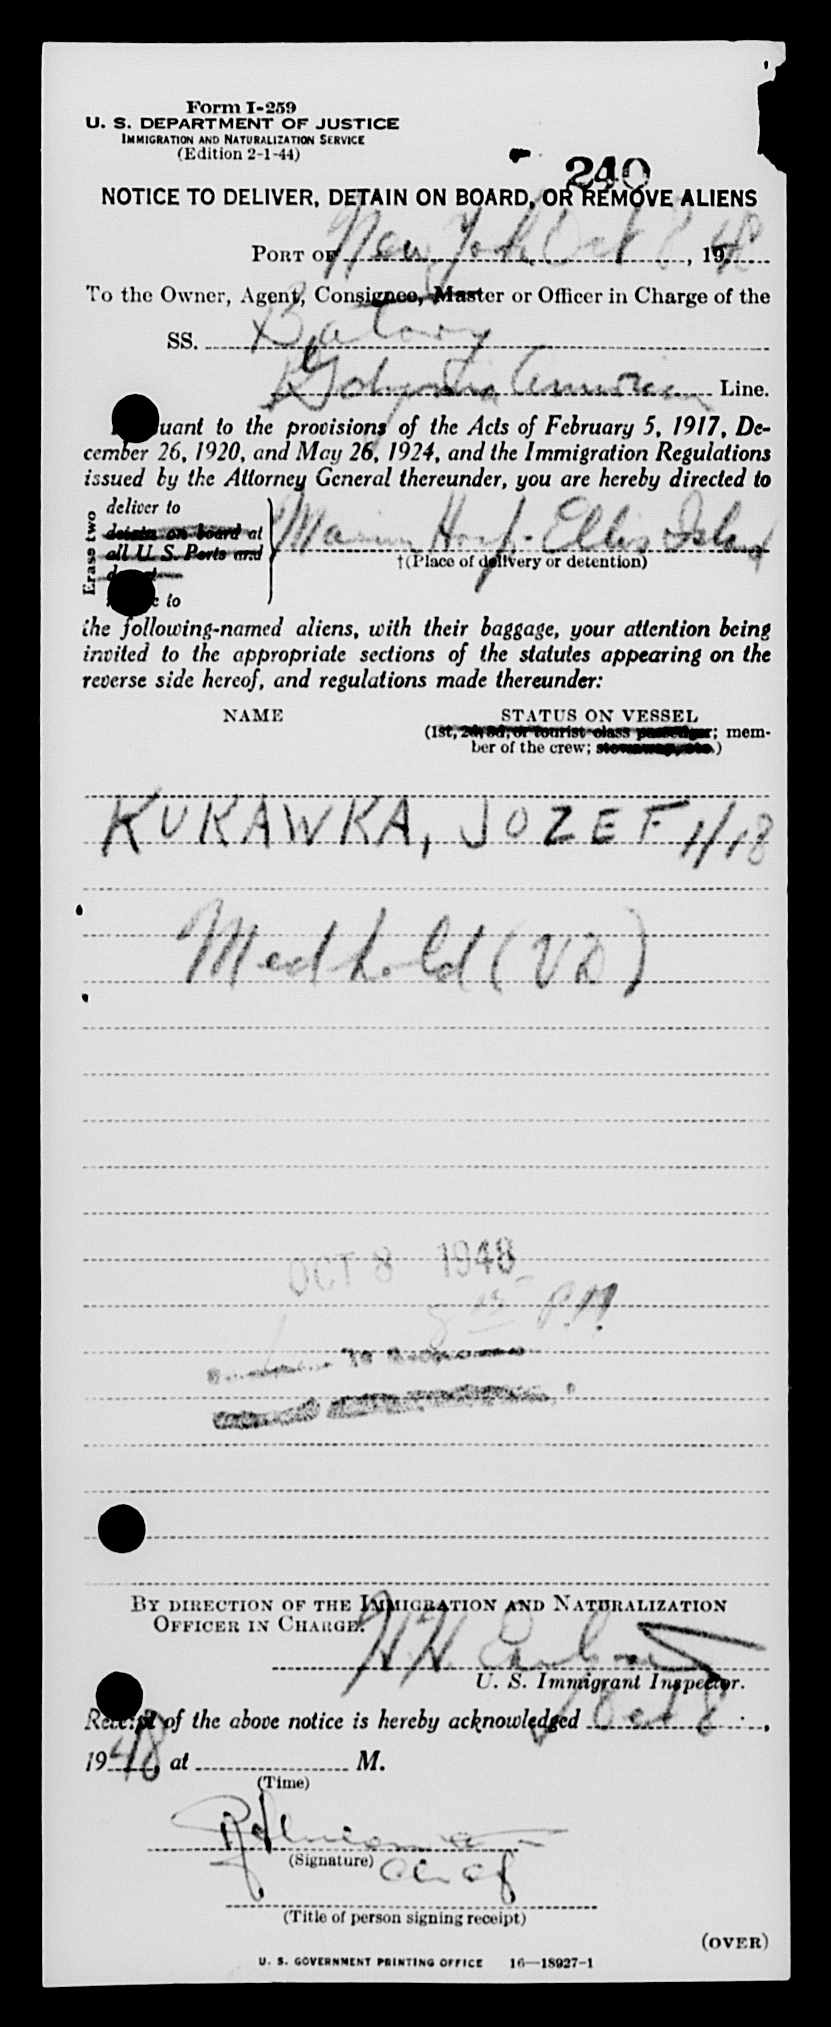 Form I-259
U. S. DEPARTMENT OF JUSTICE
IMMIGRATION AND NATURALIZATION SERVICE
(Edition 2-1-44)
240
NOTICE TO DELIVER, DETAIN ON BOARD, OR REMOVE ALIENS
PORT OF New York Oct 8, 1948
To the Owner, Agent, Consignee, Master or Officer in Charge of the
SS. Batory
Gdynia American Line.
uant to the provisions of the Acts of February 5, 1917, De-
cember 26, 1920, and May 26, 1924, and the Immigration Regulations
issued by the Attorney General thereunder, you are hereby directed to
Erase two
deliver to
detain on board at
all U. S. Ports and
to
Marine Hosp. Ellis Island
†(Place of delivery or detention)
the following-named aliens, with their baggage, your attention being
invited to the appropriate sections of the statutes appearing on the
reverse side hereof, and regulations made thereunder:
NAME STATUS ON VESSEL
(1st, 2d, 3d, or tourist class passenger; mem-
ber of the crew; stowaway, etc.)
KUKAWKA, JOZEF 1/18
Med hold (VD)
OCT 8 1948
8 15 P.M.
BY DIRECTION OF THE IMMIGRATION AND NATURALIZATION
OFFICER IN CHARGE.
H. H.
U. S. Immigrant Inspector.
Receipt of the above notice is hereby acknowledged Oct 8,
1948, at M.
(Time)
(Signature)
Chief
(Title of person signing receipt)
(OVER)
U. S. GOVERNMENT PRINTING OFFICE 16—18927-1